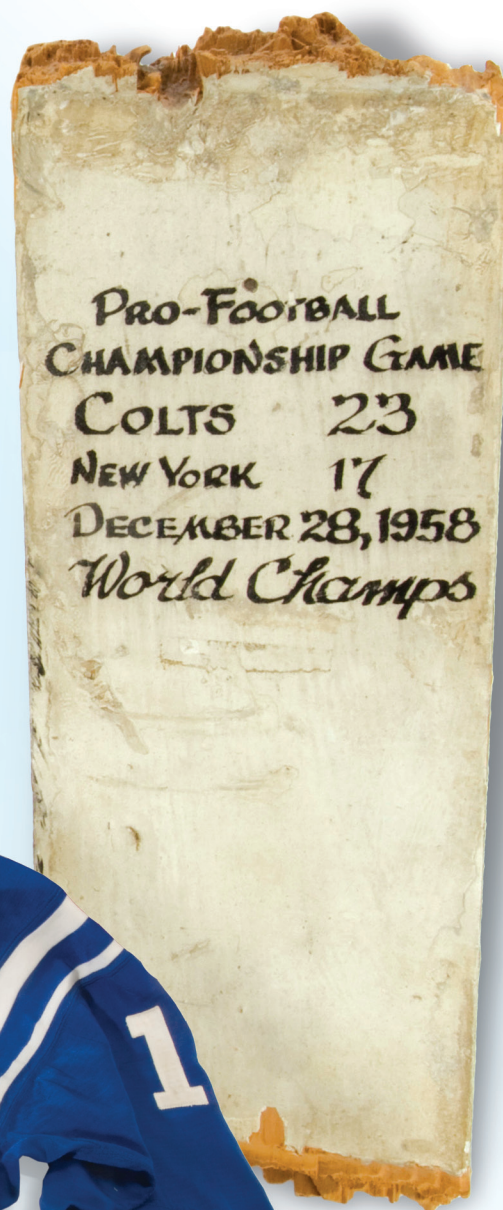 PRO-FOOTBALL
CHAMPIONSHIP GAME
COLTS 23
NEW YORK 17
DECEMBER 28, 1958
World Champs
1